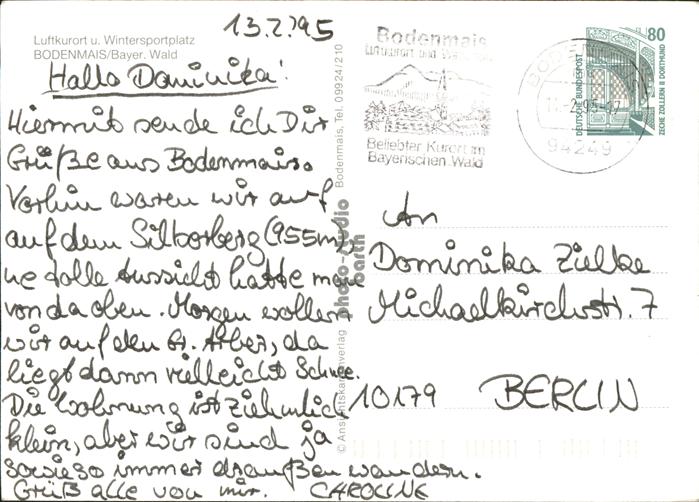 13.2.95
Luftkurort u. Wintersportplatz
BODENMAIS/Bayer. Wald
Hallo Dominika!
Hiermit sende ich Dir
Grüße aus Bodenmais.
Vorhin waren wir auf
auf dem Silberberg (955m),
ne tolle Aussicht hatte man
von da oben. Morgen wollen
wir auf den Gr. Arber, da
liegt dann vielleicht Schnee.
Die Wohnung ist ziehmlich
klein, aber wir sind ja
sowieso immer draußen wandern.
Grüß alle von mir. CAROLINE
© Ansichtskartenverlag photo-studio barth Bodenmais, Tel. 09924/210
Bodenmais
Luftkurort und
Beliebter Kurort im
Bayerischen Wald
BODENMAIS
2.95-17
94249
80
DEUTSCHE BUNDESPOST
ZECHE ZOLLERN II DORTMUND
An
Dominika Zielke
Michaelkirchstr. 7
10179 BERLIN